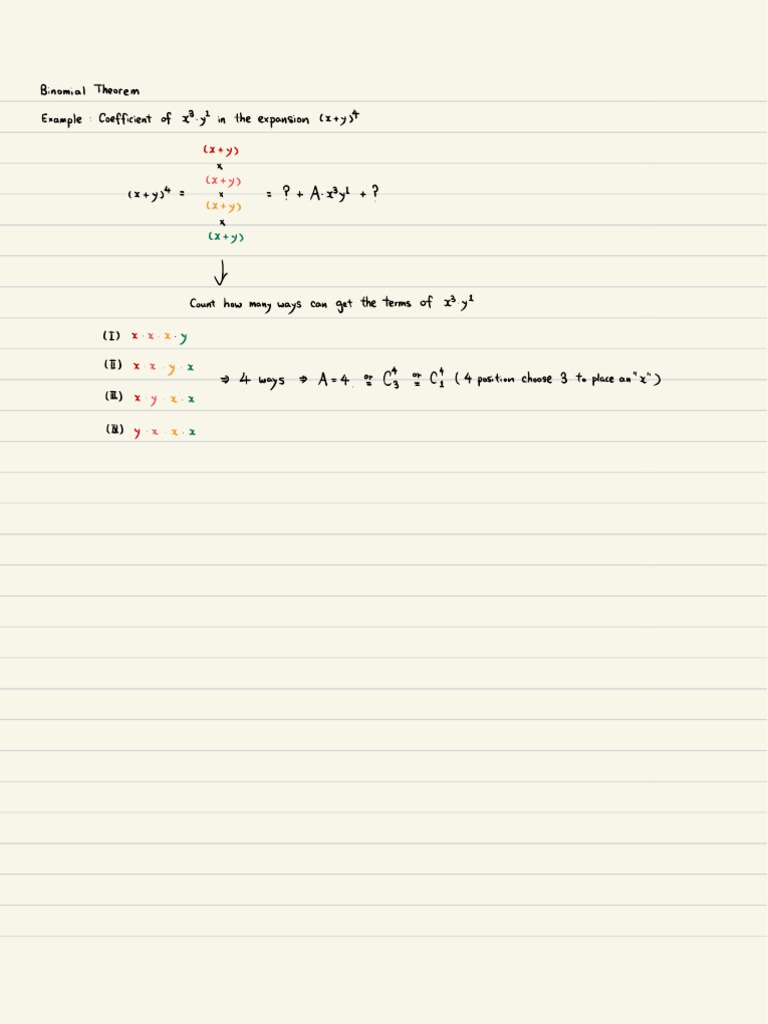 Binomial Theorem
Example : Coefficient of x³·y¹ in the expansion (x+y)⁴
(x+y)
x
(x+y)
(x+y)⁴ = x = ? + A·x³y¹ + ?
(x+y)
x
(x+y)
↓
Count how many ways can get the terms of x³·y¹
(I) x · x · x · y
(II) x · x · y · x
⇒ 4 ways ⇒ A = 4 or = C⁴₃ or = C⁴₁ (4 position choose 3 to place an "x")
(III) x · y · x · x
(IV) y · x · x · x